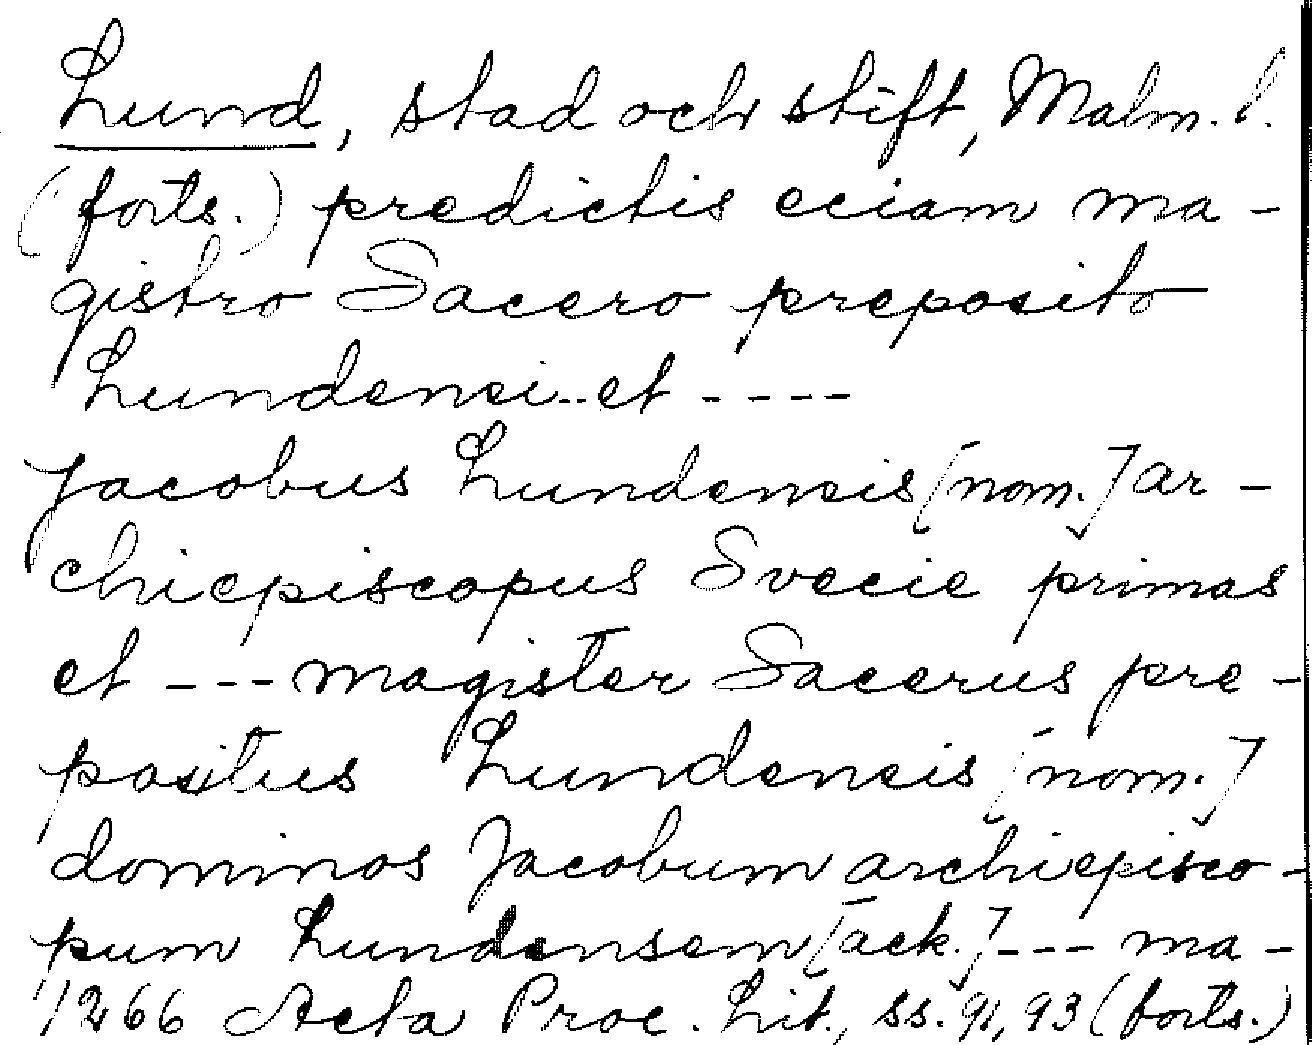 Lund, stad och stift, Malm. l.
(forts.) predictis eciam ma-
gistro Sacero preposito
Lundensi et ----
Jacobus Lundensis [nom.] ar-
chiepiscopus Svecie primas
et --- magister Sacerus pre-
positus Lundensis [nom.]
dominos Jacobum archiepisco-
pum Lundensem [ack.] --- ma-
1266 Acta Proc. Lit., ss. 91, 93 (forts.)